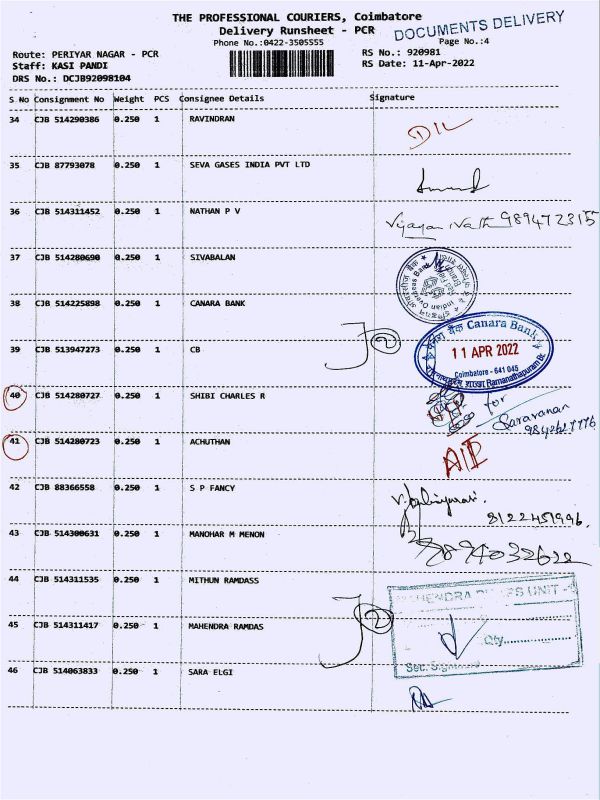 THE PROFESSIONAL COURIERS, Coimbatore
Delivery Runsheet - PCR
DOCUMENTS DELIVERY
Phone No.:0422-3505555
Page No.:4
Route: PERIYAR NAGAR - PCR
RS No.: 920981
Staff: KASI PANDI
RS Date: 11-Apr-2022
DRS No.: DCJB92098104
S No Consignment No Weight PCS Consignee Details Signature
34 CJB 514290386 0.250 1 RAVINDRAN
35 CJB 87793078 0.250 1 SEVA GASES INDIA PVT LTD
36 CJB 514311452 0.250 1 NATHAN P V
Vijayan Nath 9894723155
37 CJB 514280690 0.250 1 SIVABALAN
Indian Overseas Bank
38 CJB 514225898 0.250 1 CANARA BANK
केनरा बैंक Canara Bank
39 CJB 513947273 0.250 1 CB
11 APR 2022
Coimbatore - 641 045
Ramanathapuram Br.
40 CJB 514280727 0.250 1 SHIBI CHARLES R
for
Saravanan
41 CJB 514280723 0.250 1 ACHUTHAN
42 CJB 88366558 0.250 1 S P FANCY
8122451996
43 CJB 514300631 0.250 1 MANOHAR M MENON
44 CJB 514311535 0.250 1 MITHUN RAMDASS
UNIT
45 CJB 514311417 0.250 1 MAHENDRA RAMDAS
Qty
46 CJB 514063833 0.250 1 SARA ELGI